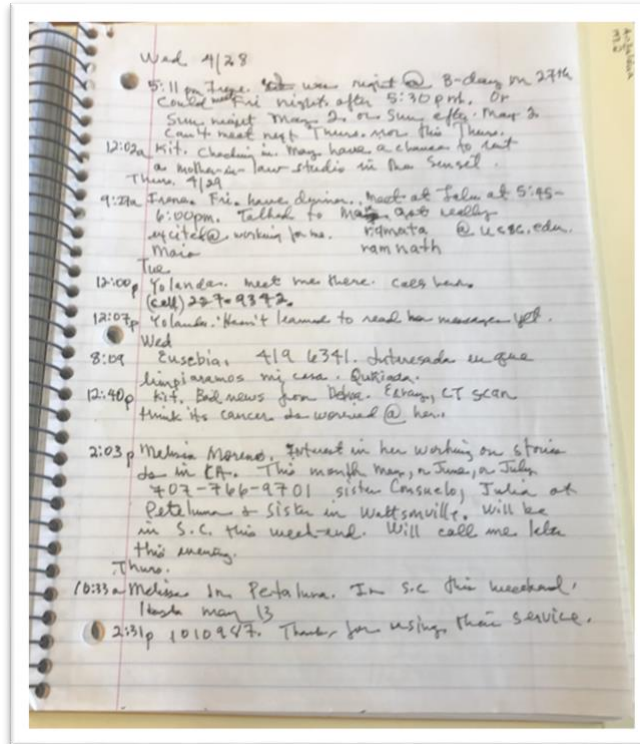 Wed 4/28
5:11 pm Irene. was right @ B-day on 27th
Could meet Fri nights after 5:30 pm. Or
Sun night May 2. or Sun after May 2
Can't meet next Thurs. nor this Thurs.
12:02a Kit. Checking in. May have a chance to rent
a mother-in-law studio in the Sunset.
Thurs. 4/29
9:27a Irene. Fri. have dinner. meet at at 5:45-
6:00pm. Talked to got really
excited @ working for me. @ ucsc.edu.
Maia ramnath
Tue
12:00p Yolanda. meet me there. call her.
(cell) 227-9342.
12:07p Yolanda. Hasn't learned to read her messages yet.
Wed
8:09 Eusebia. 419 6341. Interesada en que
limpiaramos mi casa.
12:40p Kit. Bad news from Exray, CT scan
think its cancer worried @ her.
2:03 p Melissa Moreno. Interest in her working on stories
in CA. This month May, or June, or July
707-766-9701 sister Consuelo, Julia at
Petaluma & sister in Wattsonville. Will be
in S.C. this week-end. Will call me later
this evening.
Thurs.
10:33a Melissa In Pertaluma. In S.C this weekend.
may 13
2:31p 1010987. Thanks for using their service.